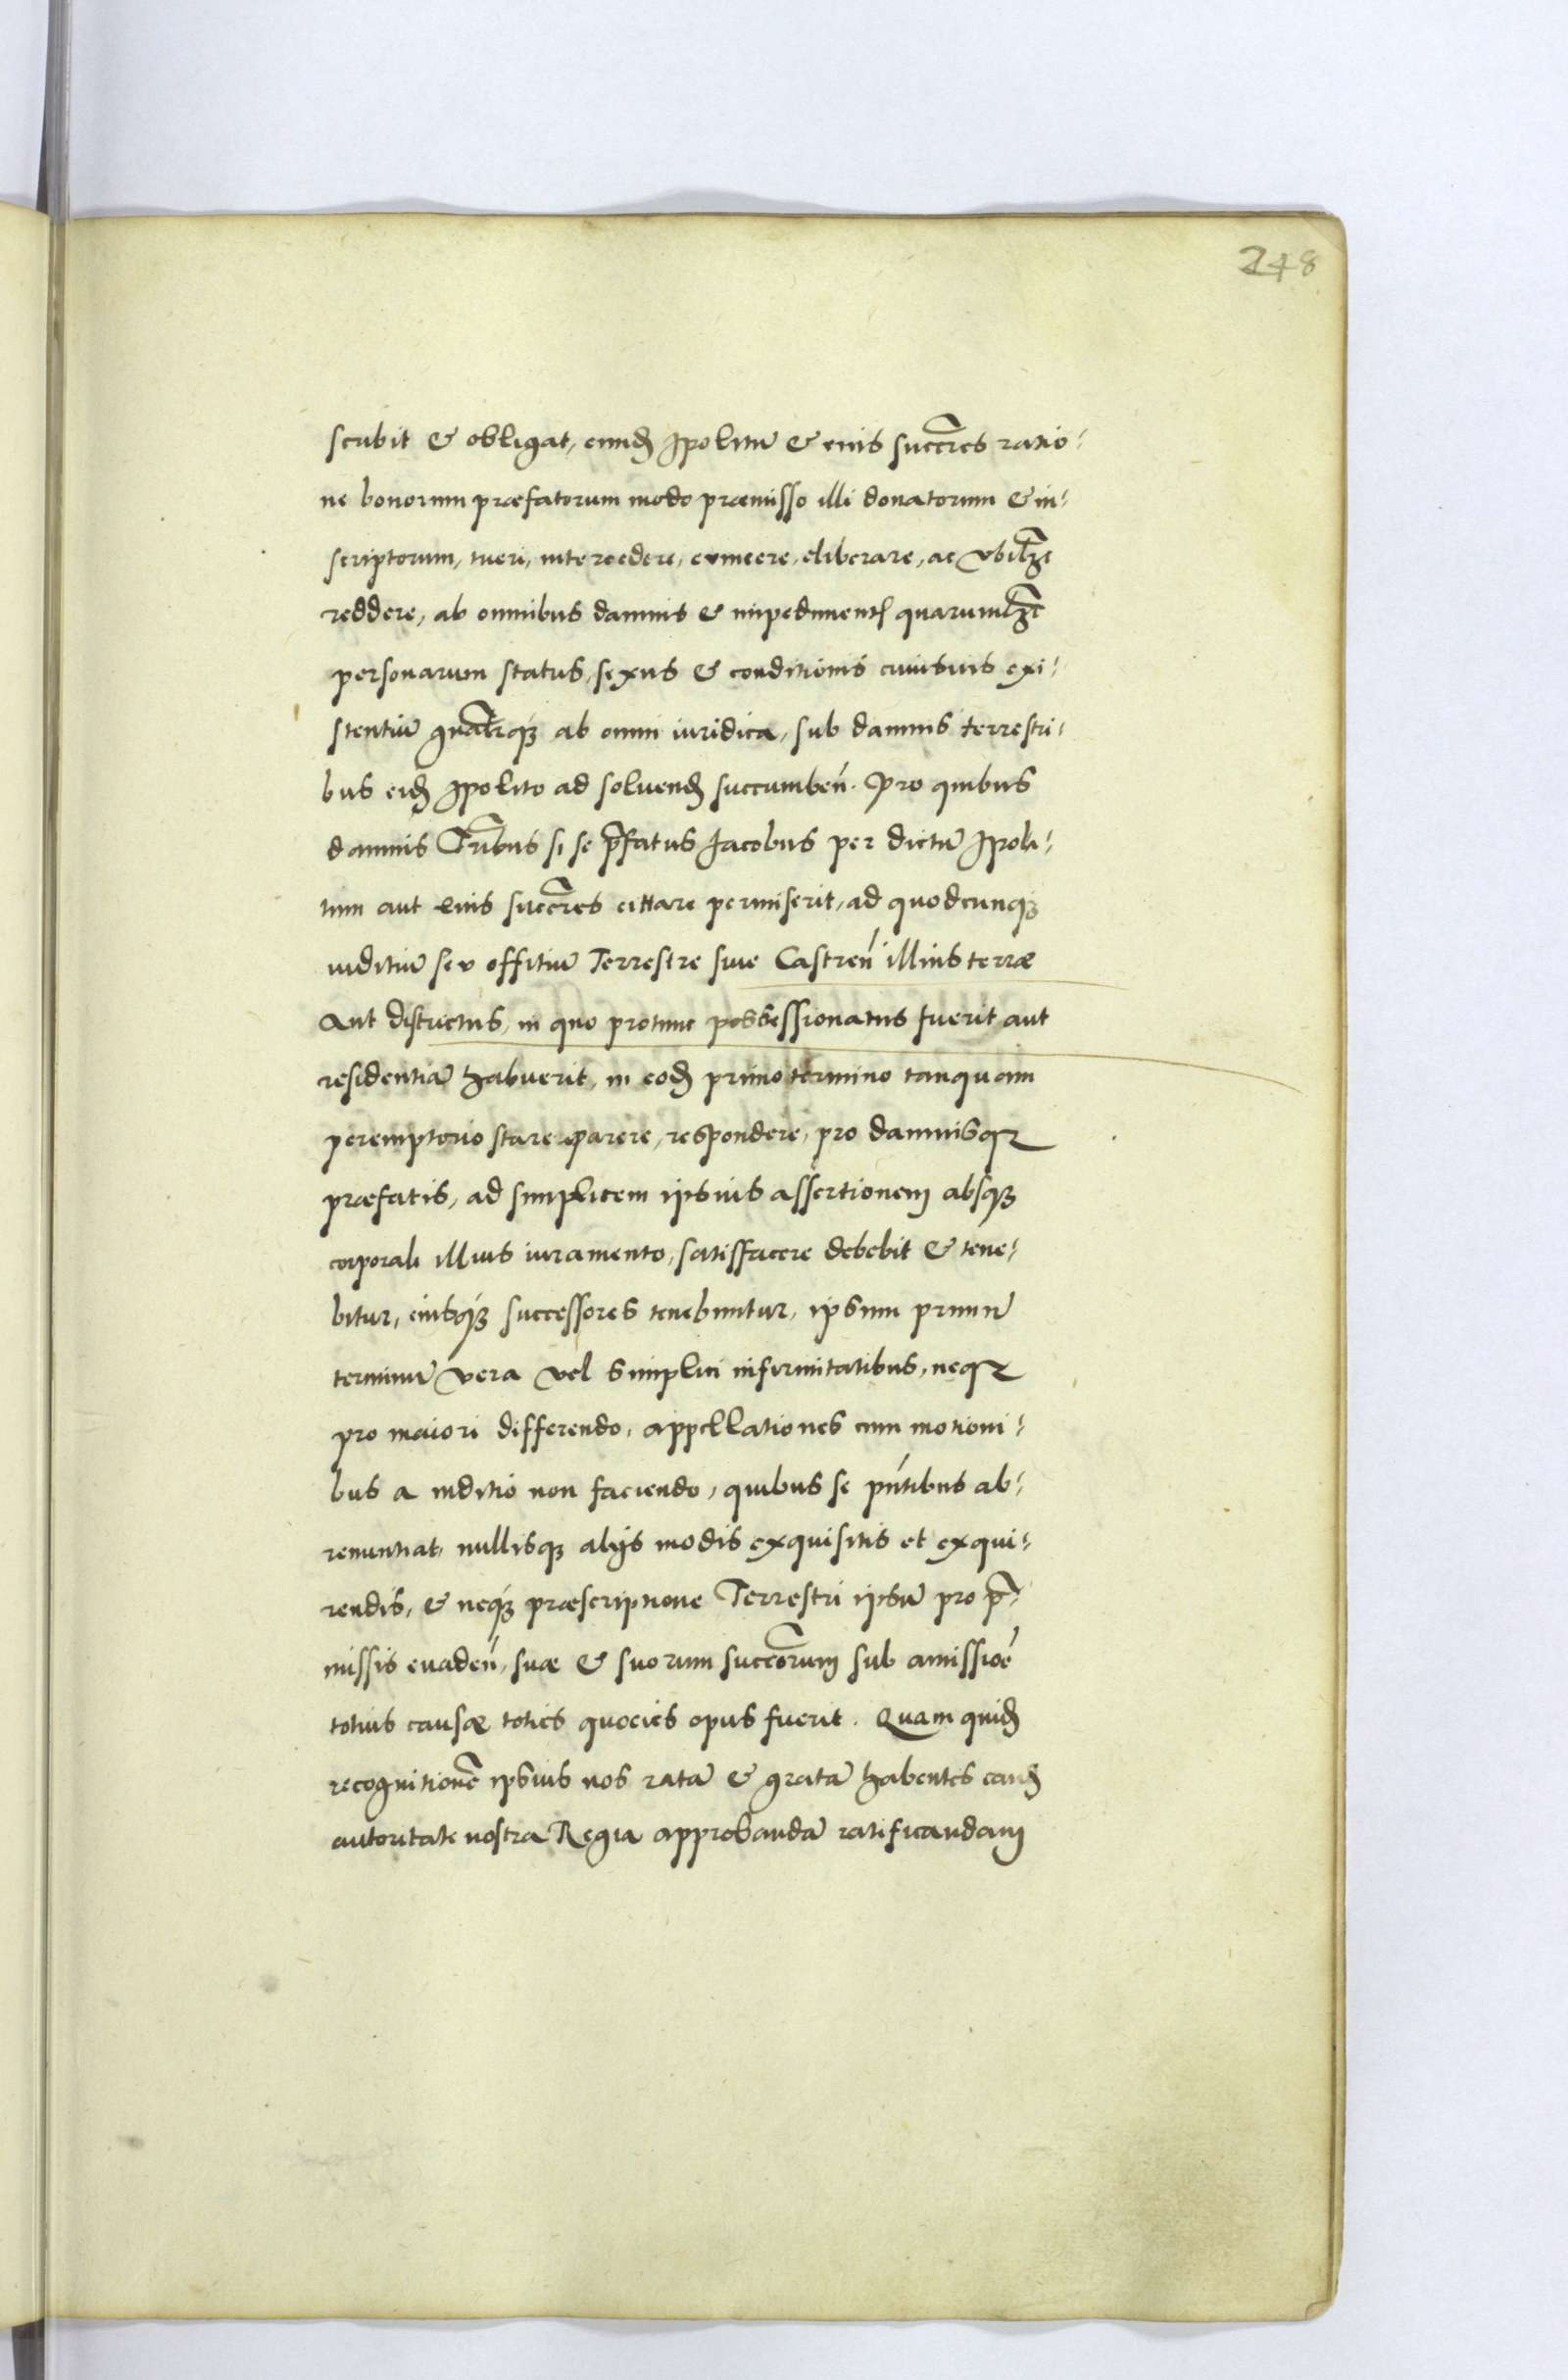 248
scribit & obligat, eund̃ Ipolitū & eius succr̃es ratio¬
ne bonorum præfatorum modo præmisso illi donatorum & in¬
scriptorum, tueri, intercedere, evincere, eliberare, ac vbilꝫt
reddere, ab omnibus damnis & impedimentꝭ quarumlꝫt
personarum status, sexus & conditionis cuiusuis exi¬
stentiū ab omni iuridica, sub damnis terrestri¬
bus eid̃ Ipolito ad soluend̃ succumben̄. Pro quibus
damnis Tr̃ibus si se p̃fatus Jacobus per dictū Ipoli¬
tum aut eius succr̃es cittare permiserit, ad quodcunqꝫ
iuditiū seu offitiū Terrestre siue Castren̄ illius terræ
Aut districtus, in quo protunc possessionatus fuerit aut
residentiā habuerit, in eod̃ primo termino tanquam
peremptorio stare parere, respondere, pro damnisqꝫ
præfatis, ad simplicem ipsius assertionem absqꝫ
corporali illius iuramento, satisfacere debebit & tene¬
bitur, eiusqꝫ successores tenebuntur, ipsum primū
terminū vera vel simplici infirmitatibus, neqꝫ
pro maiori differendo, appellationes cum motioni¬
bus a iuditio non faciendo, quibus se pn̄tibus ab¬
renuntiat, nullisqꝫ alijs modis exquisitis et exqui¬
rendis, & neqꝫ præscriptione Terrestri ipsū pro p̃¬
missis evaden̄, suæ & suorum succorum sub amissioē
totius causæ toties quocies opus fuerit. Quam quid̃
recognitionē ipsius nos ratā & gratā habentes eand̃
autoritate nostra Regia approbandā ratificandam